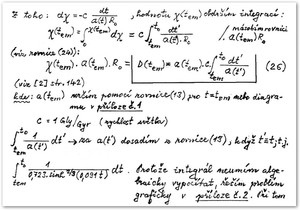 Z toho: dχ = -c dt / a(t).R₀ , hodnotu χ(t_em) obdržím integrací:
χ(t_em) = ∫₀^χ(t_em) dχ = c ∫_{t_em}^{t₀} dt / a(t).R₀ / násobím rovnici a(t).R₀
(viz rovnice (24):
χ(t_em). a(t_em). R₀ = D(t_em) = a(t_em). c ∫_{t_em}^{t₀} dt' / a(t') (26)
(viz [2] str. 142)
kde: a(t_em) určím pomocí rovnice (13) pro t = t_em nebo diagra-
mu v příloze č.1
c = 1 Gly/Gyr (rychlost světla)
∫_{t_em}^{t₀} 1/a(t') dt' → za a(t') dosadím z rovnice (13), když t ≡ t', tj.
∫_{t_em}^{t₀} 1 / 0,723. sinh^{2/3}(0,091 t) dt. Protože integrál neumím alge-
braicky vypočítat, řeším problém
graficky v příloze č.2. Při tom